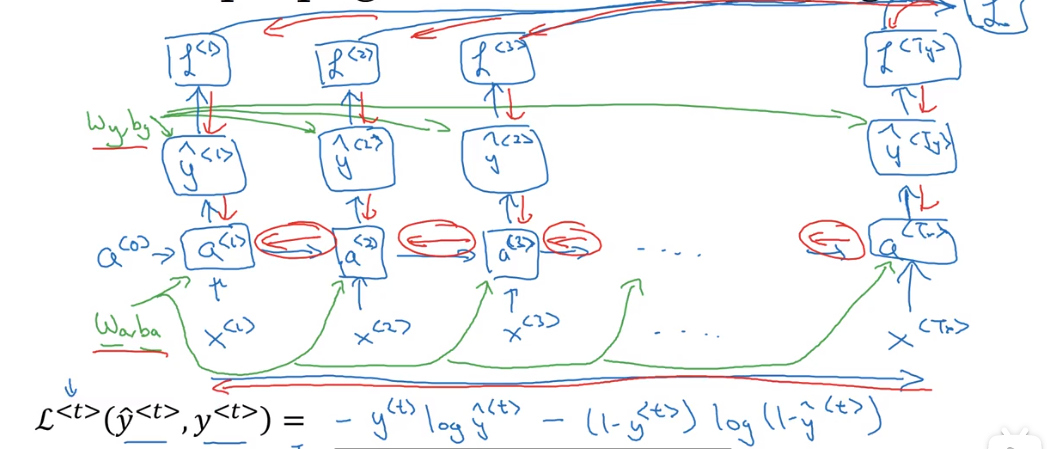 L
L<1> L<2> L<3> L<Ty>
Wy, by
ŷ<1> ŷ<2> ŷ<2> ŷ<Ty>
a<0> a<1> a<2> a<3> .... a<Tx>
Wa, ba
x<1> x<2> x<3> .... x<Tx>
ℒ<t>(ŷ<t>, y<t>) = - y<t> log ŷ<t> - (1-y<t>) log (1-ŷ<t>)